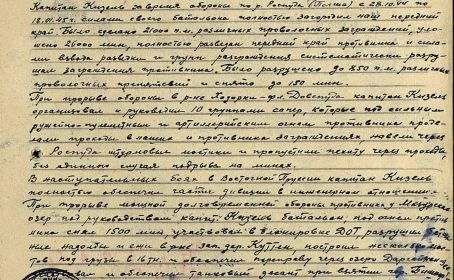 Капитан Кизель за время обороны по р. Роспуда (Польша) с 28.10.44 по
18.01.45 г. силами своего батальона полностью загородил наш передний
край. Было сделано 21000 п.м. различных проволочных заграждений, уло-
жено 26000 мин, полностью разведан передний край противника и сила-
ми взвода разведки и групп разграждения систематически разру-
шал заграждения противника. Было разрушено до 850 п.м. различных
проволочных препятствий и снято до 150 мин.
При прорыве обороны в р-не капитан Кизель
организовал и руководил 10 группами сапер, которые под сильным
ружейно-пулеметным и артиллерийским огнем противника проде-
лали проходы в наших и противника заграждениях навели через
Роспуда штурмовые мостики и пропустили пехоту через проходы,
без единого случая подрыва на минах.
В наступательных боях в Восточной Пруссии капитан Кизель
полностью обеспечил части дивизии в инженерном отношении.
При прорыве мощной долговременной обороны противника у Мазурских
озер под руководством капит. Кизель батальон под огнем против-
ника снял 1500 мин, участвовал в блокировке ДОТ, разрушил
надолбы и в р-не зап. дер. Куттен, построил несколько мос-
тов под грузы в 16 тн и обеспечил переправу через озеро
и обеспечил танковый десант при взятии